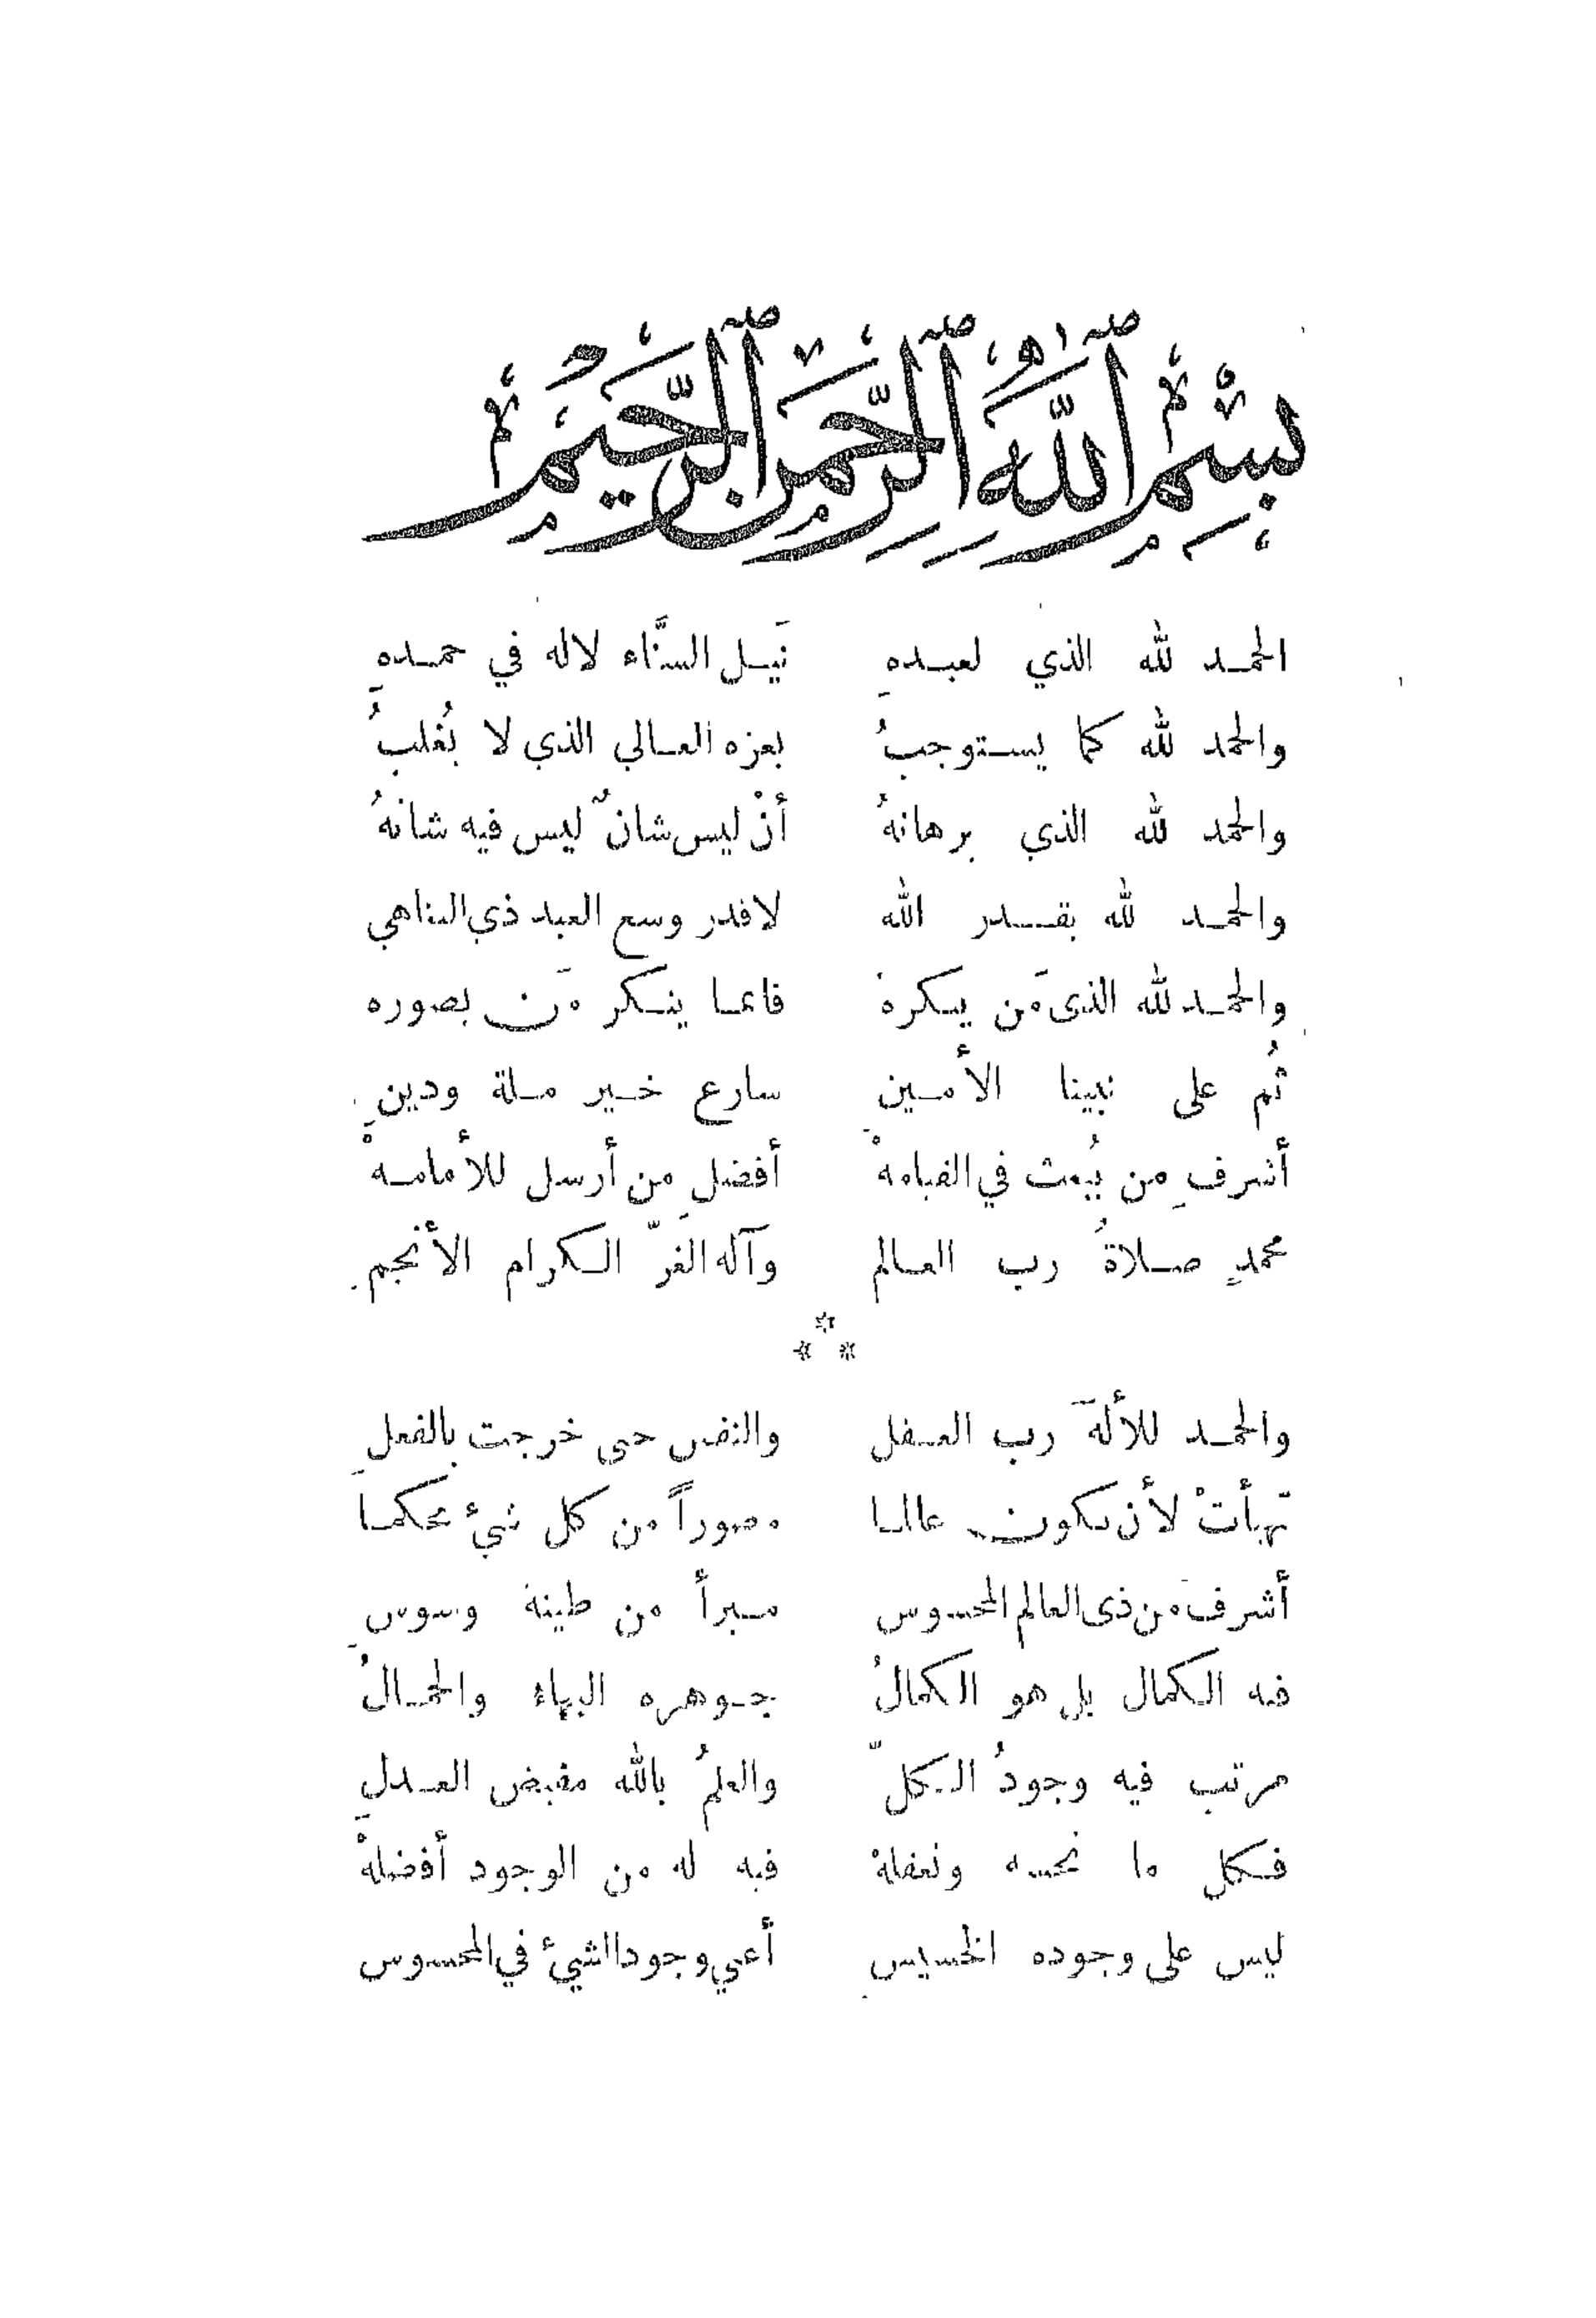 بِسْمِ ٱللَّهِ ٱلرَّحْمَٰنِ ٱلرَّحِيمِ
الحمد لله الذي لعبدهِ نَيل السنَّاء لاله في حمدهِ
والحمد لله كما يستوجبُ بعزه العالي الذي لا يُغلبُ
والحمد لله الذي برهانهُ أنْ ليس شانٌ ليس فيه شانهُ
والحمد لله بقدر الله لا قدر وسع العبد ذي التناهي
والحمد لله الذى مَن ينكره فانما ينكر مَن يصوره
ثُم على نبينا الأمينِ شارع خير ملة ودينِ
أشرفِ من يُبعث في القيامهْ أفضلِ من أرسل للأمامهْ
محمدٍ صلاةُ رب العالم وآله الغرّ الكرام الأنجم
والحمد للأله رب العقل والنفس حتى خرجت بالفعلِ
تهيأتْ لأن تكون عالما مصوراً من كل شيء محكما
أشرفَ من ذى العالم المحسوس مبرأ من طينة وسوسِ
فيه الكمال بل هو الكمالُ جوهره البهاء والجمالُ
مرتب فيه وجودُ الكلّ والعلمُ بالله مفيض العدلِ
فكل ما نحسه ونعقلهْ فيه له من الوجود أفضلهْ
ليس على وجوده الخسيسِ أعني وجود الشيء في المحسوس